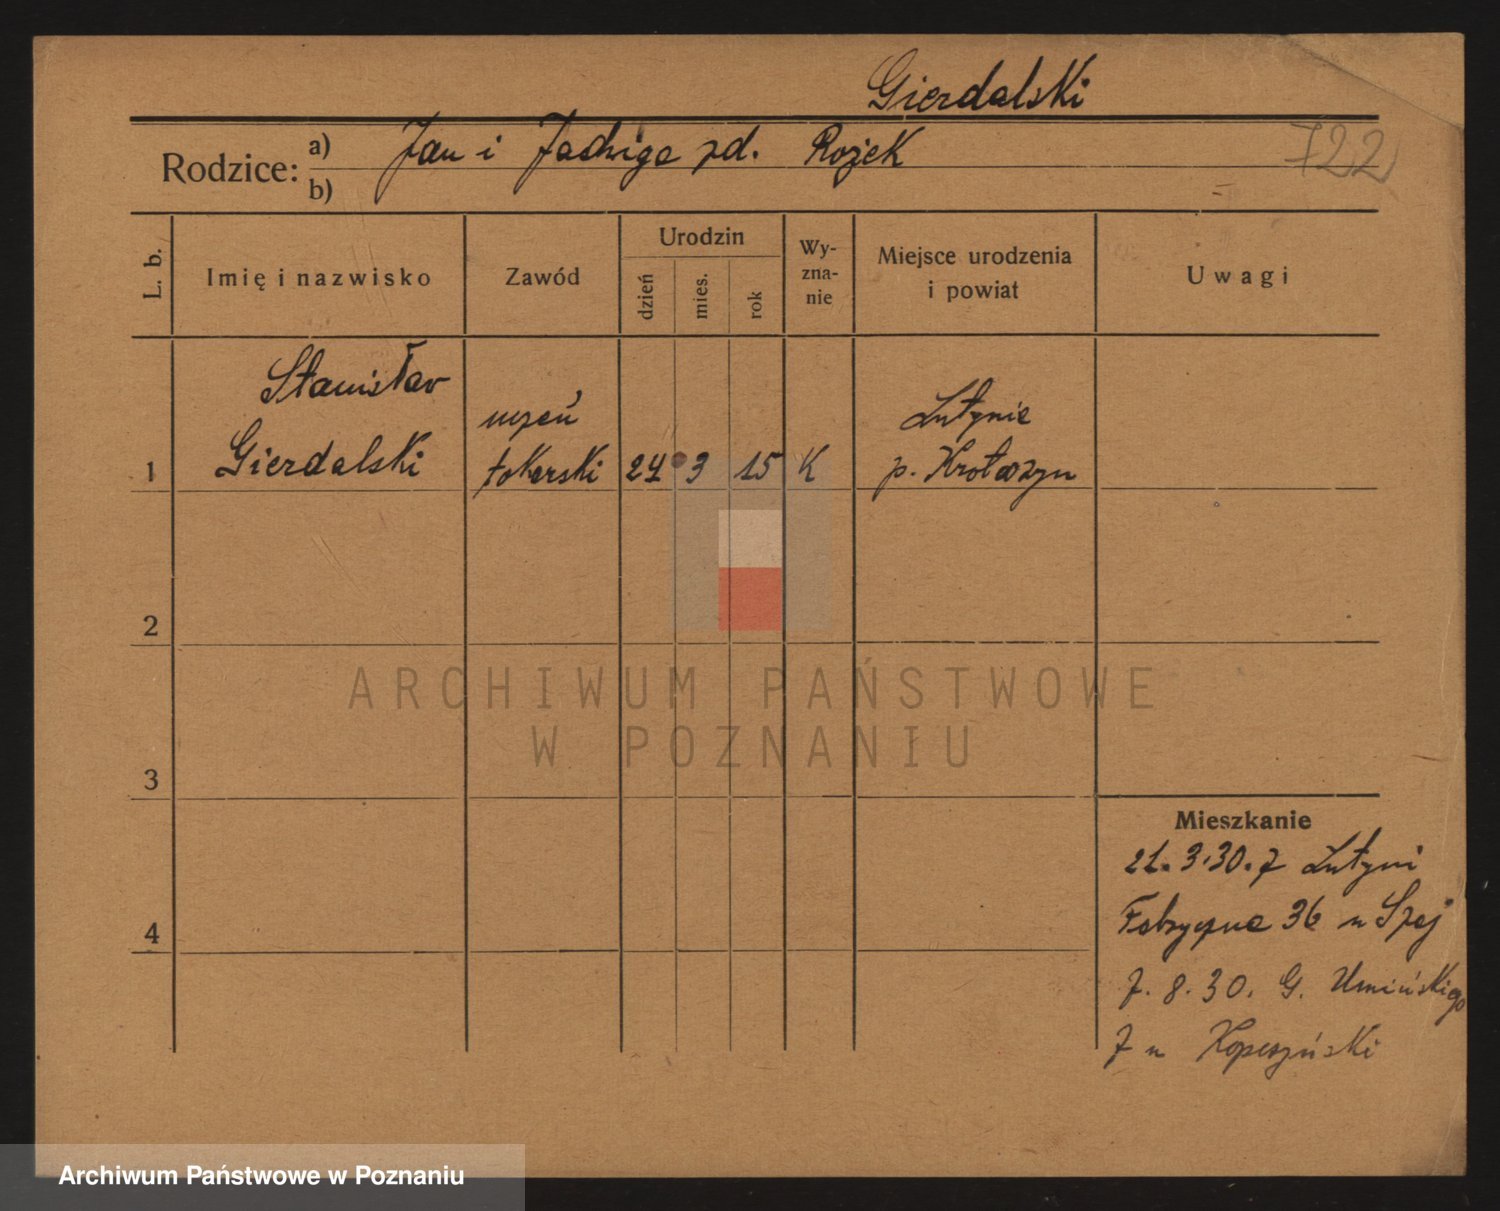 Gierdalski
722
Rodzice: a) Jan i Jadwiga zd. Rożek
b)
L. b.
Imię i nazwisko
Zawód
Urodzin
dzień
mies.
rok
Wy-
zna-
nie
Miejsce urodzenia
i powiat
Uwagi
Stanisław
Gierdalski
uczeń
tokarski
1
24 3 15 K
Lutynie
p. Krotoszyn
2
3
4
Mieszkanie
21.3.30. z Lutyni
Fabryczna 36 u Szaj
7.8.30. G. Umińskiego
7 u Kopeszyński
ARCHIWUM PAŃSTWOWE
W POZNANIU
Archiwum Państwowe w Poznaniu